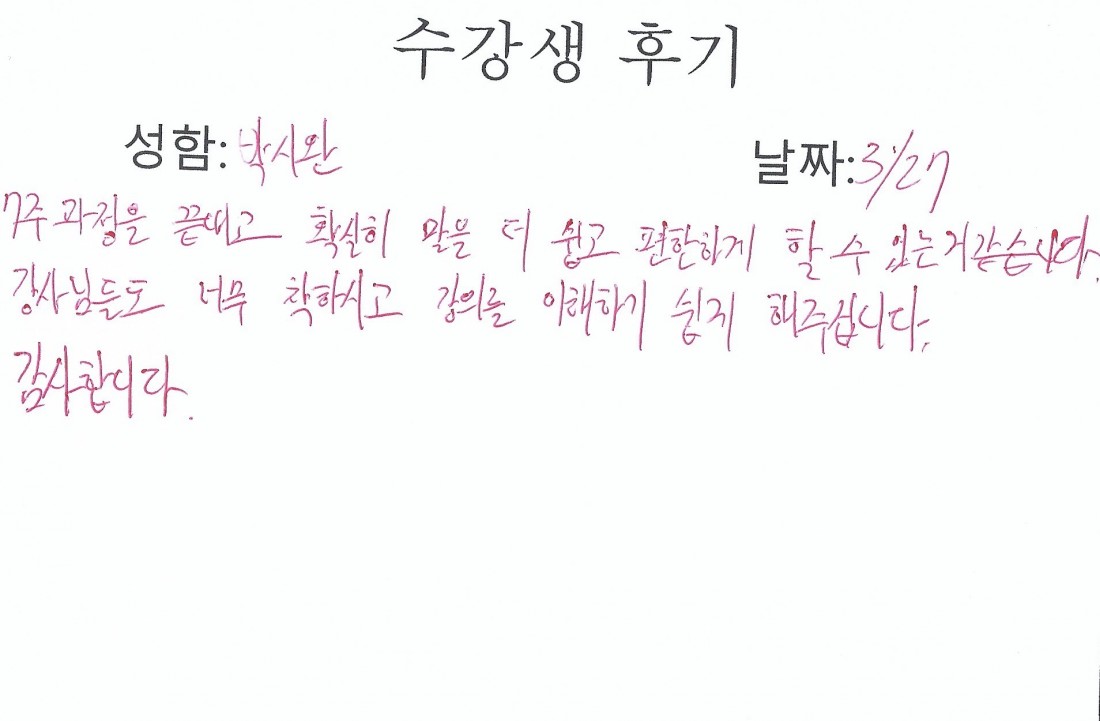 수강생 후기
성함: 박시완 날짜: 3/27
7주 과정을 끝내고 확실히 말을 더 쉽고 편한하게 할 수 있는거같습니다.
강사님들도 너무 착하시고 강의를 이해하기 쉽게 해주십니다.
감사합니다.